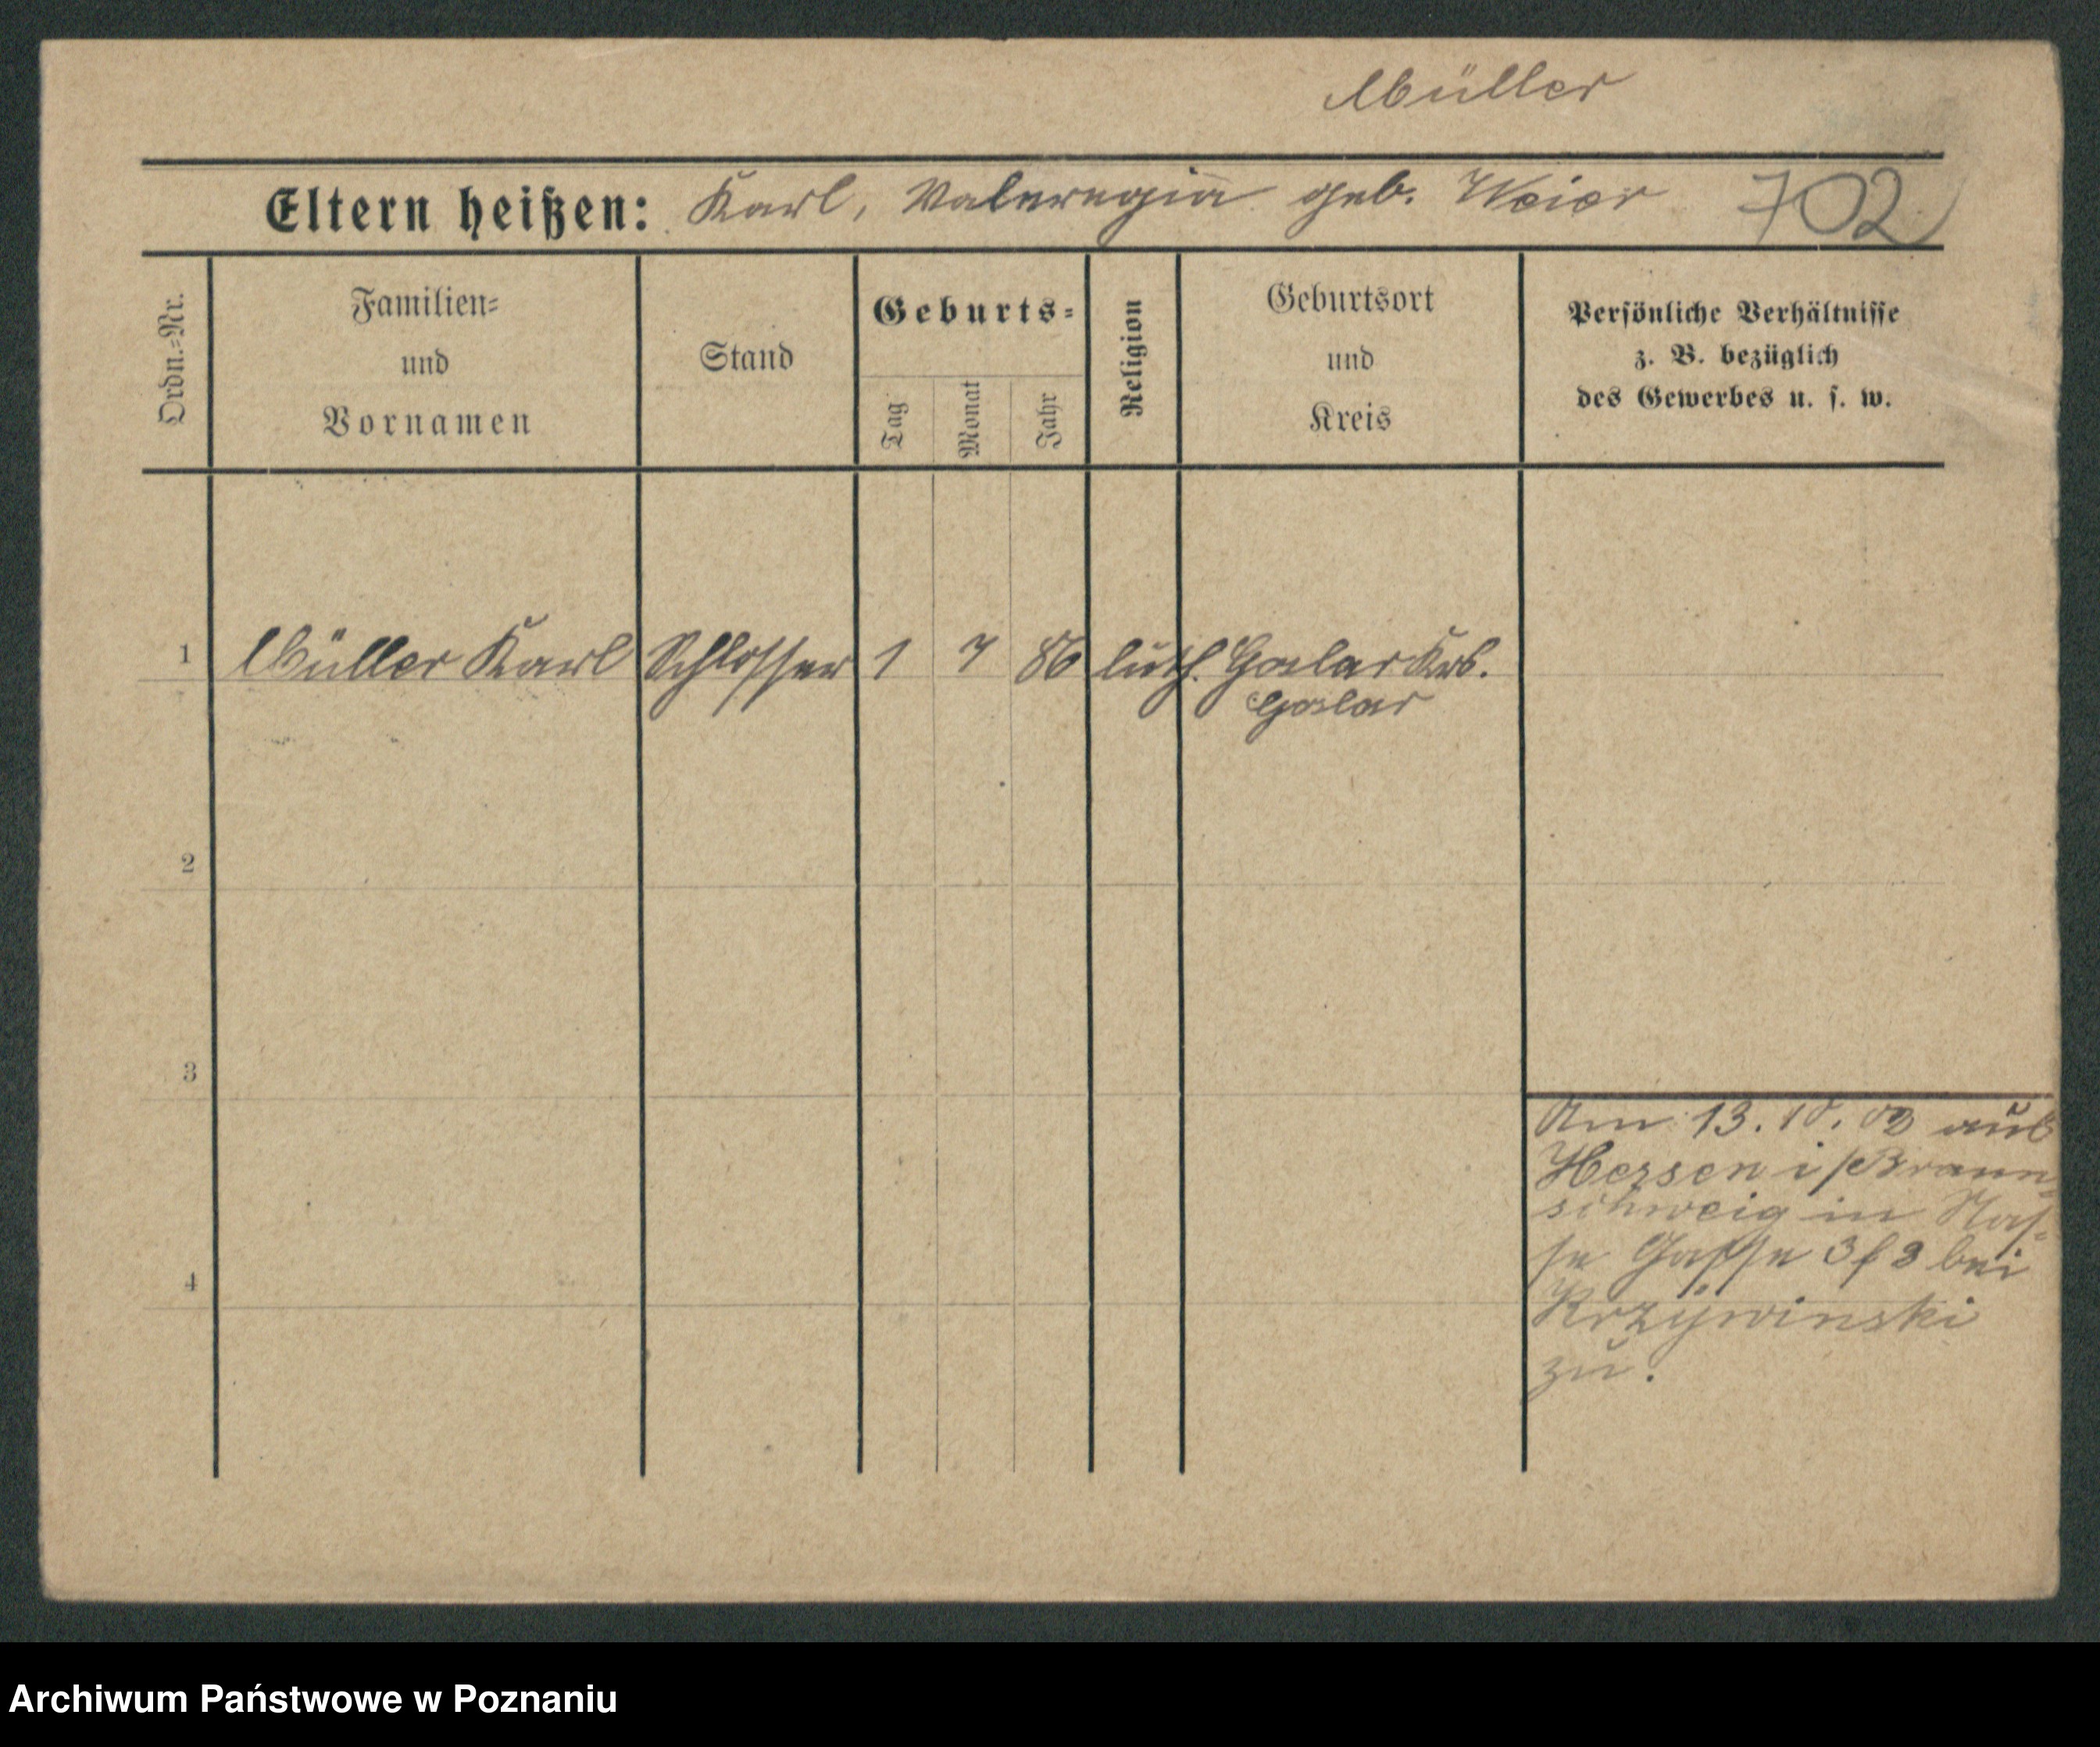 Müller
Eltern heißen: Karl, geb. Weier 702
Ordn.-Nr.
Familien-
und
Vornamen
Stand
Geburts-
Tag
Monat
Jahr
Religion
Geburtsort
und
Kreis
Persönliche Verhältnisse
z. B. bezüglich
des Gewerbes u. s. w.
1 Müller Karl Schlosser 1 7 86 luth. Goslar Krs.
Goslar
2
3
4
Am 13. 10. 03 aus
i/Braun-
schweig in Nas-
se Gasse 3 bei
Krzywinski
zu.
Archiwum Państwowe w Poznaniu